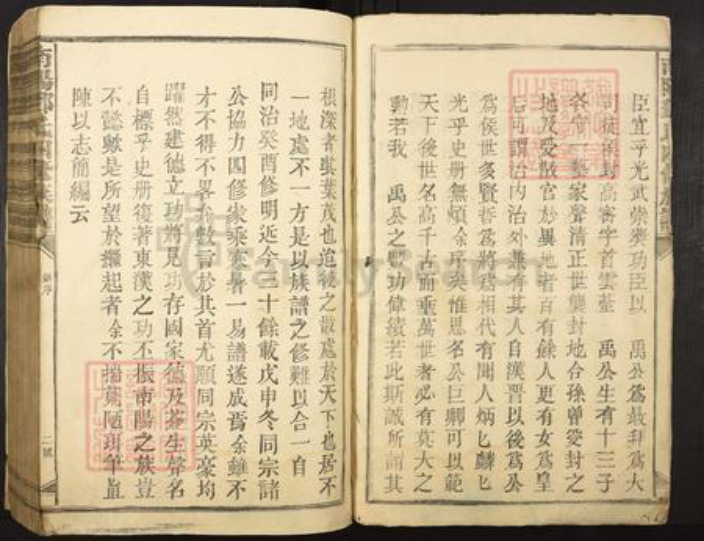 臣宜乎光武崇賚功臣以　禹公為最拜為大
司徒因封高密字首雲薹　禹公生有十三子
各守一藝家聲清正世襲封地合孫曾受封之
地及受散官於異地者百有餘人更有女為皇
后可謂治內治外兼有其人自漢晉以後為公
為侯世多賢哲為將為相代有聞人炳匕麟匕
光乎史册無煩余序矣惟思名公巨卿可以範
天下後世名高千古而垂萬世者必有莫大之
勳若我　禹公之豐功偉績若此斯誠所謂其
根深者其葉茂也迨後之散處於天下也居不
一地處不一方是以族譜之修難以合一自
同治癸酉修明迄今三十餘載戊申冬同宗諸
公協力四修家乘寒暑一易譜遂成焉余雖不
才不得不畧叙數言於其首尤願同宗英豪均
躍然建德立功將見功存國家德及蒼生聲名
自標乎史册復著東漢之功丕振南陽之族豈
不懿歟是所望於繼起者余不揣莵陋珥筆直
陳以志簡編云
新序
二號
FamilySearch